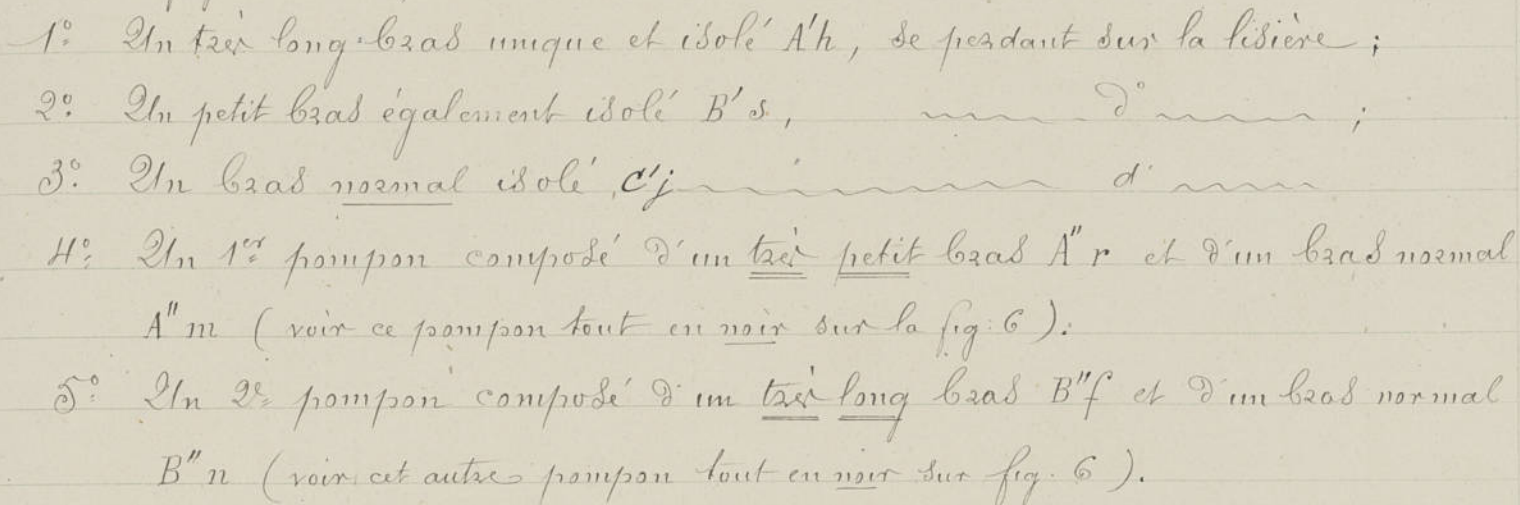 1º. Un très long bras unique et isolé A'h, se perdant sur la lisière ;
2º. Un petit bras également isolé B's, dº ;
3º. Un bras normal isolé C'j dº
4º. Un 1er pompon composé d'un très petit bras A"r et d'un bras normal
A"m ( voir ce pompon tout en noir sur la fig. 6 ).
5º. Un 2e pompon composé d'un très long bras B"f et d'un bras normal
B"n ( voir cet autre pompon tout en noir sur fig. 6 ).